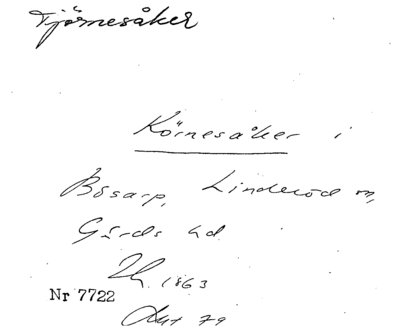 Tjörnesåker
Körnesåker i
Bosarp, Linderöd sn,
Gärds hd
1863
Nr 7722
79